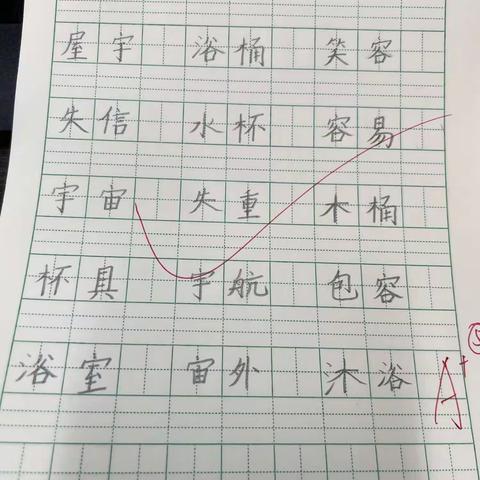 屋宇 浴桶 笑容
失信 水杯 容易
宇宙 失重 木桶
杯具 宇航 包容
浴室 宙外 沐浴
A+